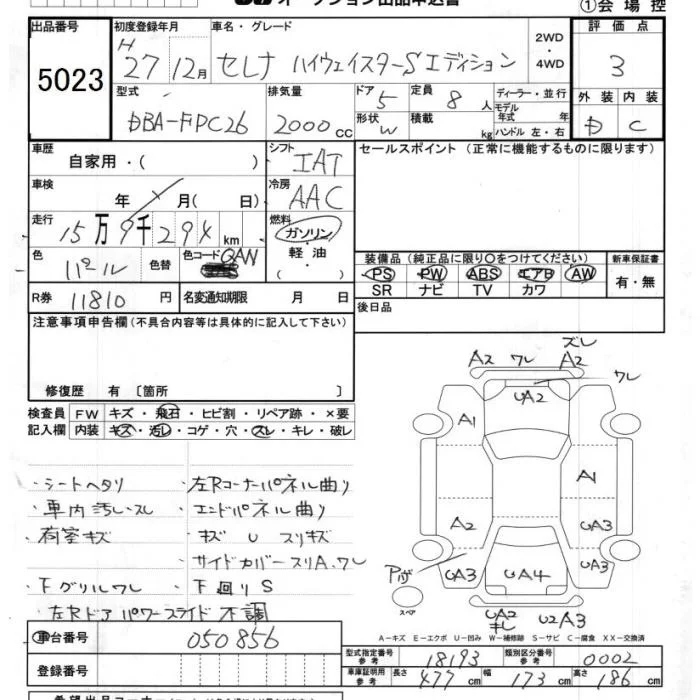 ①会場控
出品番号 初度登録年月 車名・グレード 2WD・4WD 評価点
5023
H 27 12月 セレナ ハイウェイスターSエディション 3
型式 排気量 ドア 5 定員 8人 ディーラー・並行 外装 内装
DBA-FPC26 2000cc 形状 W 積載 kg モデル年式 年 ハンドル 左・右 D C
車歴 自家用・( ) シフト IAT セールスポイント (正常に機能するものに限ります)
車検 年 月( 日) 冷房 AAC
走行 15万9千294km 燃料 ガソリン 軽油 ( )
色 パール 色替 色コード QAN 装備品(純正品に限り○をつけてください) 新車保証書
PS PW ABS エアB AW 有・無
SR ナビ TV カワ
R券 11810円 名変通知期限 月 日 後日品
注意事項申告欄(不具合内容等は具体的に記入して下さい)
修復歴 有 〔箇所 〕
検査員 FW キズ・飛石・ヒビ割・リペア跡・×要
記入欄 内装 キズ・汚レ・コゲ・穴・スレ・キレ・破レ
・シートヘタリ ・左Rコーナーパネル曲り
・車内汚レ・スレ ・エンドパネル曲り
・荷室キズ ・キズ U スリキズ
・サイドカバースリA、ワレ
・下グリルワレ ・下回りS
・左Rドアパワースライド不調
ズレ
Aス ワレ A2
ワレ
UA2
A1
A1
A2
UA3
Pガ
UA3
UA4
UA3
スペア
UA2
キレ
U2A3
A-キズ E-エクボ U-凹み W-補修跡 S-サビ C-腐食 XX-交換済
車台番号 050856
登録番号
型式指定番号 参考 18193 類別区分番号 参考 0002
車庫証明用 参考 長さ 477cm 幅 173cm 高さ 186cm